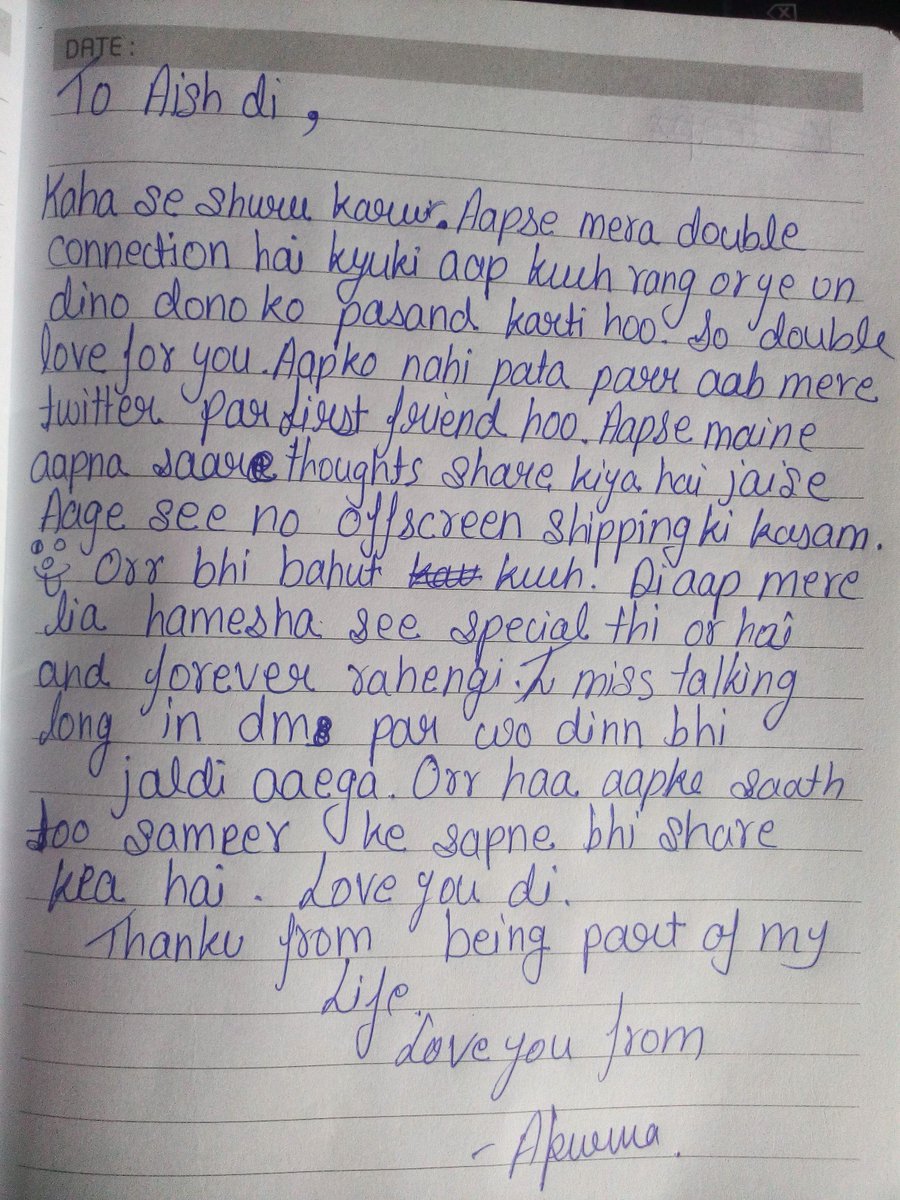 DATE:
To Aish di,
Kaha se shuru karu. Aapse mera double
connection hai kyuki aap kuch rang or ye un
dino dono ko pasand karti hoo. So double
love for you. Aapko nahi pata parr aab mere
twitter par first friend hoo. Aapse maine
aapna saare thoughts share kiya hai jaise
Aage see no offscreen shipping ki kasam.
Orr bhi bahut kuch. Di aap mere
lia hamesha see special thi or hai
and forever rahengi. I miss talking
long in dms par wo dinn bhi
jaldi aaega. Orr haa aapke saath
too sameer ke sapne bhi share
kea hai. Love you di.
Thanku from being part of my
Life.
Love you from